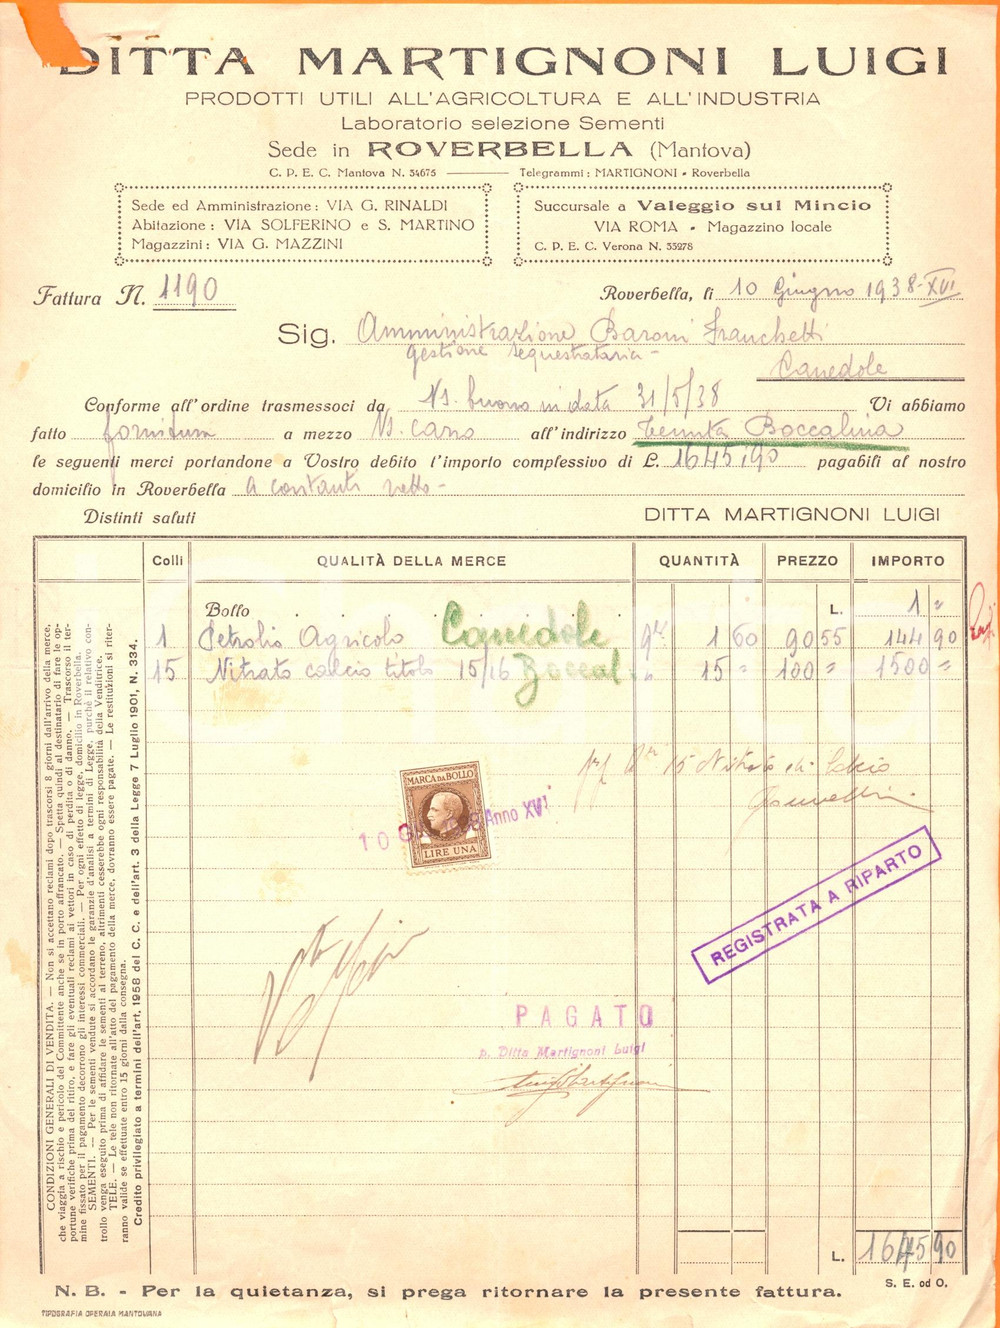 DITTA MARTIGNONI LUIGI
PRODOTTI UTILI ALL'AGRICOLTURA E ALL'INDUSTRIA
Laboratorio selezione Sementi
Sede in ROVERBELLA (Mantova)
C. P. E. C. Mantova N. 54675 Telegrammi: MARTIGNONI - Roverbella
Sede ed Amministrazione: VIA G. RINALDI
Abitazione: VIA SOLFERINO e S. MARTINO
Magazzini: VIA G. MAZZINI
Succursale a Valeggio sul Mincio
VIA ROMA - Magazzino locale
C. P. E. C. Verona N. 33278
Fattura N. 1190
Roverbella, li 10 Giugno 1938-XVI
Sig. Amministrazione Baroni Franchetti
gestione sequestrataria -
Canedole
Conforme all'ordine trasmessoci da Ns. buono in data 31/5/38 Vi abbiamo
fatto fornitura a mezzo Ns. carro all'indirizzo Tenuta Boccalina
le seguenti merci portandone a Vostro debito l'importo complessivo di £. 1645,90 pagabili al nostro
domicilio in Roverbella A contanti netto -
Distinti saluti DITTA MARTIGNONI LUIGI
Colli QUALITÀ DELLA MERCE QUANTITÀ PREZZO IMPORTO
Bollo L. 1 "
1 Petrolio Agricolo Canedole q.li 1 60 90 55 144 90
15 Nitrato calcio titolo 15/16 Boccal. " 15 " 100 " 1500 "
15 Nitrato di Calcio
MARCA DA BOLLO
LIRE UNA
10 Anno XVI
REGISTRATA A RIPARTO
PAGATO
p. Ditta Martignoni Luigi
Luigi Martignoni
CONDIZIONI GENERALI DI VENDITA. — Non si accettano reclami dopo trascorsi 8 giorni dall'arrivo della merce,
che viaggia a rischio e pericolo del Committente anche se in porto affrancato. — Spetta quindi al destinatario di fare le op-
portune verifiche prima del ritiro, e fare gli eventuali reclami ai vettori in caso di perdita o di danno. — Trascorso il ter-
mine fissato per il pagamento decorrono gli interessi commerciali. — Per ogni effetto di legge, domicilio in Roverbella.
SEMENTI. — Per le sementi vendute si accordano le garanzie d'analisi a termini di Legge, purchè il relativo con-
trollo venga eseguito prima di affidare le sementi al terreno, altrimenti cesserebbe ogni responsabilità della Venditrice.
TELE. — Le tele non ritornate all'atto del pagamento della merce, dovranno essere pagate. — Le restituzioni si riter-
ranno valide se effettuate entro 15 giorni dalla consegna.
Credito privilegiato a termini dell'art. 1958 del C. C. e dell'art. 3 della Legge 7 Luglio 1901, N. 334.
L. 1645 90
S. E. od O.
N. B. - Per la quietanza, si prega ritornare la presente fattura.
TIPOGRAFIA OPERAIA MANTOVANA